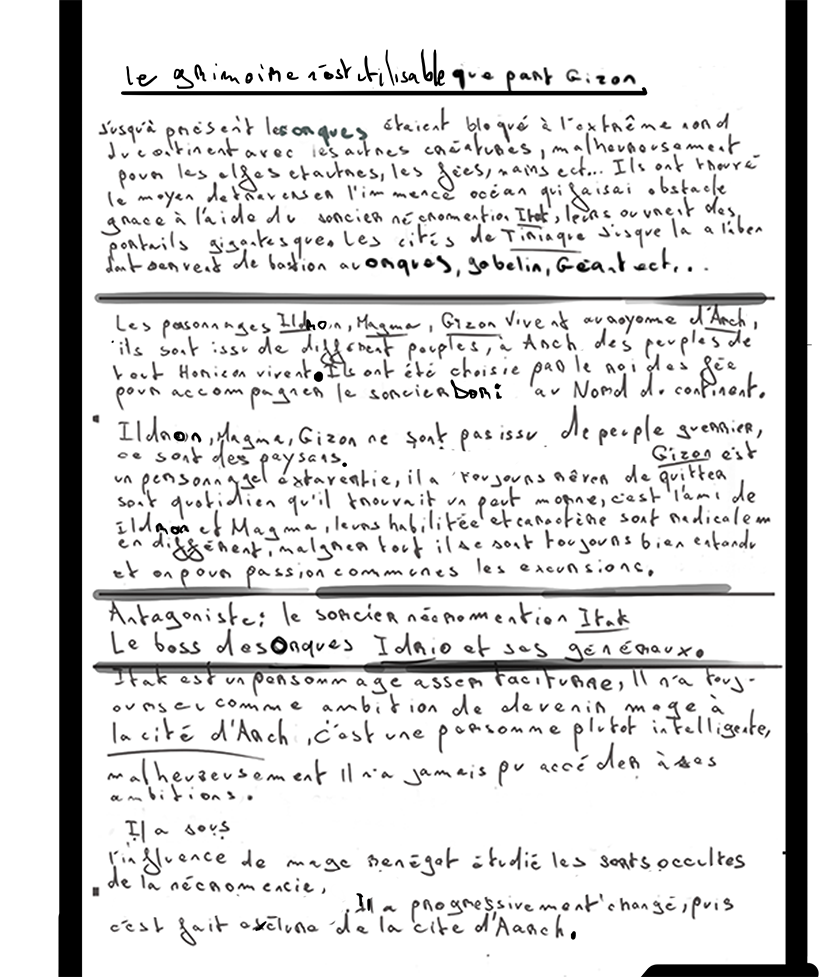 le grimoire n'est utilisable que part Gizon.
Jusqu'à présent les orques étaient bloqué à l'extrême nord
du continent avec les autres créatures, malheureusement
pour les elfes et autres, les fées, nains ect... Ils ont trouvé
le moyen de traverser l'immence océan qui faisai obstacle
grace à l'aide du sorcier nécromention Itak, leurs ouvrent des
portails gigantesque. Les cités de Tiriaque jusque la a l'aben
dont servent de bastion au orques, gobelin, Géant ect,...
Les personnages Ildron, Magma, Gizon vivent au royome d'Arch,
ils sont issu de différent peuples, à Arch des peuples de
tout Horizon vivent. Ils ont été choisie par le roi des fée
pour accompagner le sorcier bori au Nord du continent.
Ildron, Magma, Gizon ne sont pas issu de peuple guerrier,
ce sont des paysans. Gizon est
un personnage extaventie, il a toujours rêver de quitter
sont quotidien qu'il trouvait un peut morne, c'est l'ami de
Ildron et Magma, leurs habilitée et caractère sont radicalem
en différent, malgrer tout il se sont toujours bien entendu
et on pour passion communes les excursions.
Antagoniste: le sorcier nécromention Itak
Le boss des Orques Idrio et ses généraux.
Itak est un personnage assez taciturne, Il n'a touj-
ours eu comme ambition de devenir mage à
la cité d'Arch, c'est une personne plutot intelligente,
malheureusement Il n'a jamais pu accéder à ses
ambitions.
Il a sous
l'influence de mage renégat étudié les sorts occultes
de la nécromencie,
Il a progressivement changé, puis
c'est fait exclure de la cite d'Aarch.